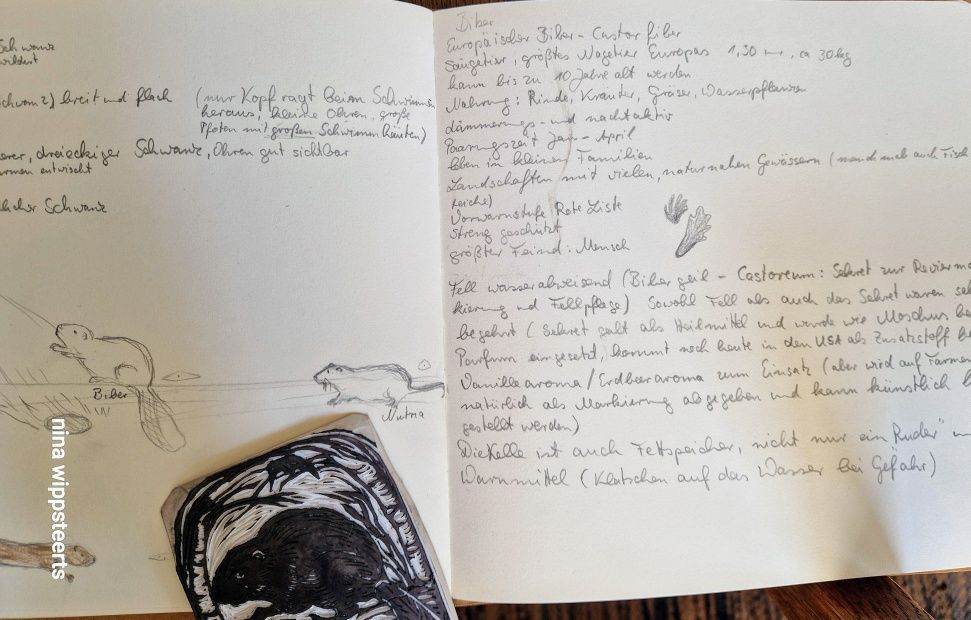 Schwanz
breit und flach (nur Kopf ragt beim Schwimmen
heraus, kleine Ohren, große
Pfoten mit großen Schwimmhäuten)
dreieckiger Schwanz, Ohren gut sichtbar
entwischt
licher Schwanz
Biber
Nutria
nina wippsteerts
Biber
Europäischer Biber - Castor fiber
Säugetier, größtes Nagetier Europas 1,30 m, ca 30kg
kann bis zu 10 Jahre alt werden
Nahrung: Rinde, Kräuter, Gräser, Wasserpflanzen
dämmerungs- und nachtaktiv
Paarungszeit Jan - April
leben in kleinen Familien
Landschaften mit vielen, naturnahen Gewässern (manchmal auch Fisch
teiche)
Vorwarnstufe Rote Liste
streng geschützt
größter Feind: Mensch
Fell wasserabweisend (Bibergeil - Castoreum: Sekret zur Revierma
kierung und Fellpflege) Sowohl Fell als auch das Sekret waren se
begehrt (Sekret galt als Heilmittel und wurde wie Moschus be
Parfum eingesetzt, kommt noch heute in den USA als Zusatzstoff be
Vanillearoma/Erdbeeraroma zum Einsatz (aber wird auf Farmen
natürlich als Markierung abgegeben und kann künstlich h
gestellt werden)
Die Kelle ist auch Fettspeicher, nicht nur ein Ruder" u
Warnmittel (Klatschen auf das Wasser bei Gefahr)